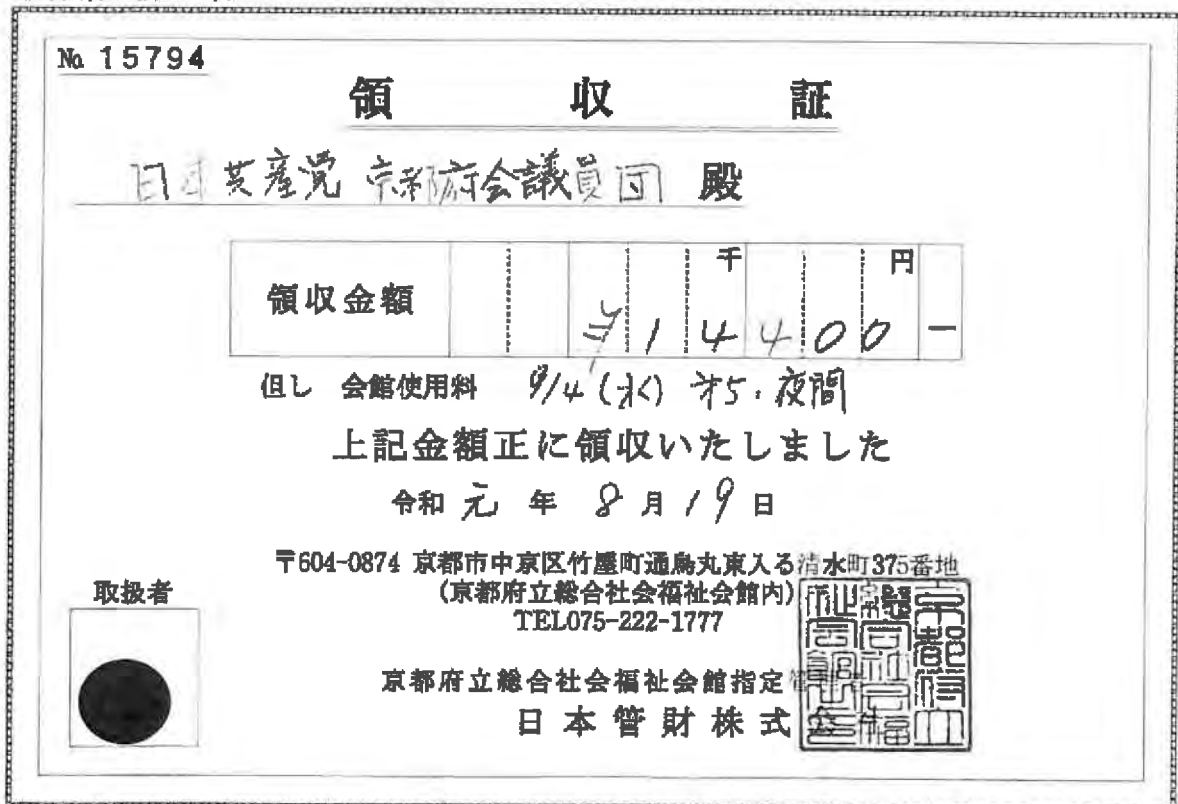 No. 15794
領収証
日本共産党 京都府会議員団 殿
千 円
領収金額 ¥14400-
但し 会館使用料 9/4(水) 才5・夜間
上記金額正に領収いたしました
令和 元 年 8 月 19 日
〒604-0874 京都市中京区竹屋町通烏丸東入る清水町375番地
(京都府立総合社会福祉会館内)
TEL075-222-1777
取扱者
京都府立総合社会福祉会館指定
日本管財株式